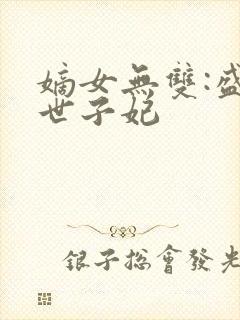 嫡女無雙:盛
世子妃
銀子總會發光